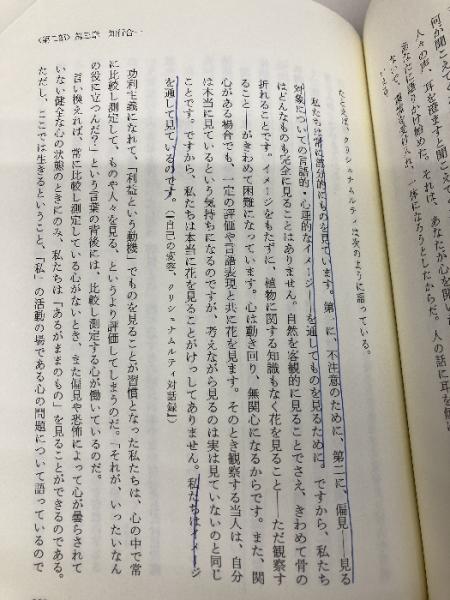 何か聞こえて
人々の声、耳を澄ますと聞こえて
あなたに語りかけ始めた。それは、あなたが心を開い
体になろうとしたからだ。人の話に耳を傾け
いえる
〈第二部〉第三章　知行合一
たとえば、クリシュナムルティは次のように語っている。
私たちは常に部分的にものを見ています。第一に、不注意のために、第二に、偏見――見る
対象についての言語的・心理的なイメージ――を通してものを見るために。ですから、私たち
はどんなものも完全に見ることはありません。自然を客観的に見ることでさえ、きわめて骨の
折れることです。イメージをもたずに、植物に関する知識もなく花を見ること――ただ観察す
ること――がきわめて困難になっています。心は動き回り、無関心になるからです。また、関
心がある場合でも、一定の評価や言語表現と共に花を見ます。そのとき観察する当人は、自分
は本当に見ているという気持ちになるのですが、考えながら見るのは実は見ていないのと同じ
ことです。ですから、私たちは本当に花を見ることがけっしてありません。私たちはイメージ
を通して見ているのです。（『自己の変容、クリシュナムルティ対話録』）
功利主義になれて、「利益という動機」でものを見ることが習慣となった私たちは、心の中で常
に比較し測定して、ものや人々を見る、というより評価してしまうのだ。「それが、いったいなん
の役に立つんだ？」という言葉の背後には、比較し測定する心が働いているのだ。
言い換えれば、常に比較し測定している心がないとき、また偏見や恐怖によって心が曇らされて
いない健全な心の状態のときにのみ、私たちは「あるがままのもの」を見ることができるのである。
ただし、ここでは生きるということ、「私」の活動の場である心の問題について語っているので